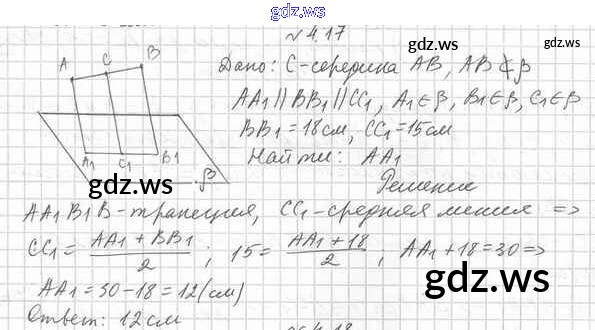 gdz.ws
№ 4.17
A C B
Дано: C-середина AB, AB ⊄ β
AA1 || BB1 || CC1, A1 ∈ β, B1 ∈ β, C1 ∈ β
BB1 = 18 см, CC1 = 15 см
Найти: AA1
A1 C1 B1
β
gdz.ws
Решение
AA1B1B-трапеция, CC1-средняя линия =>
CC1 = (AA1 + BB1)/2 ; 15 = (AA1 + 18)/2 ; AA1 + 18 = 30 =>
AA1 = 30 - 18 = 12 (см)
Ответ: 12 см
gdz.ws
gdz.ws
№ 4.18